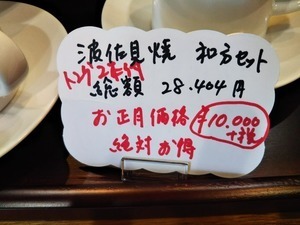 波佐見焼 和方セット
トング2本付
総額 28.404円
お正月価格 ¥10.000
+税
絶対お得